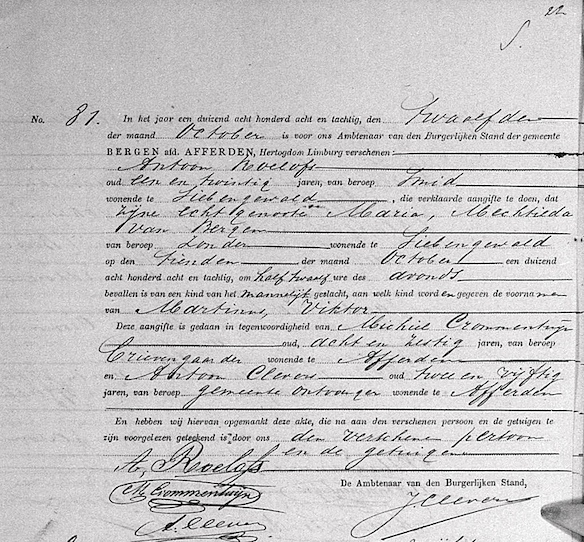 22
No. 81. In het jaar een duizend acht honderd acht en tachtig, den twaalfden
der maand October is voor ons Ambtenaar van den Burgerlijken Stand der gemeente
BERGEN afd. AFFERDEN, Hertogdom Limburg verschenen:
Antoon Roelofs
oud een en twintig jaren, van beroep Smid
wonende te Siebengewald, die verklaarde aangifte te doen, dat
zijne echtgenoote Maria, Mechtilda
van Bergen
van beroep zonder wonende te Siebengewald
op den tienden der maand October een duizend
acht honderd acht en tachtig, om half twaalf ure des avonds
bevallen is van een kind van het mannelijk geslacht, aan welk kind worden gegeven de voornamen
van Martinus, Viktor
Deze aangifte is gedaan in tegenwoordigheid van Michiel Crommentuijn
oud, acht en zestig jaren, van beroep
Brievengaarder wonende te Afferden
en Antoon Clevers oud twee en vijftig
jaren, van beroep gemeente ontvanger wonende te Afferden
En hebben wij hiervan opgemaakt deze akte, die na aan den verschenen persoon en de getuigen te
zijn voorgelezen geteekend is door ons den verschenen persoon
en de getuigen
A, Roelofs
M Crommentuijn
A. Clevers
De Ambtenaar van den Burgerlijken Stand,
J Clevers